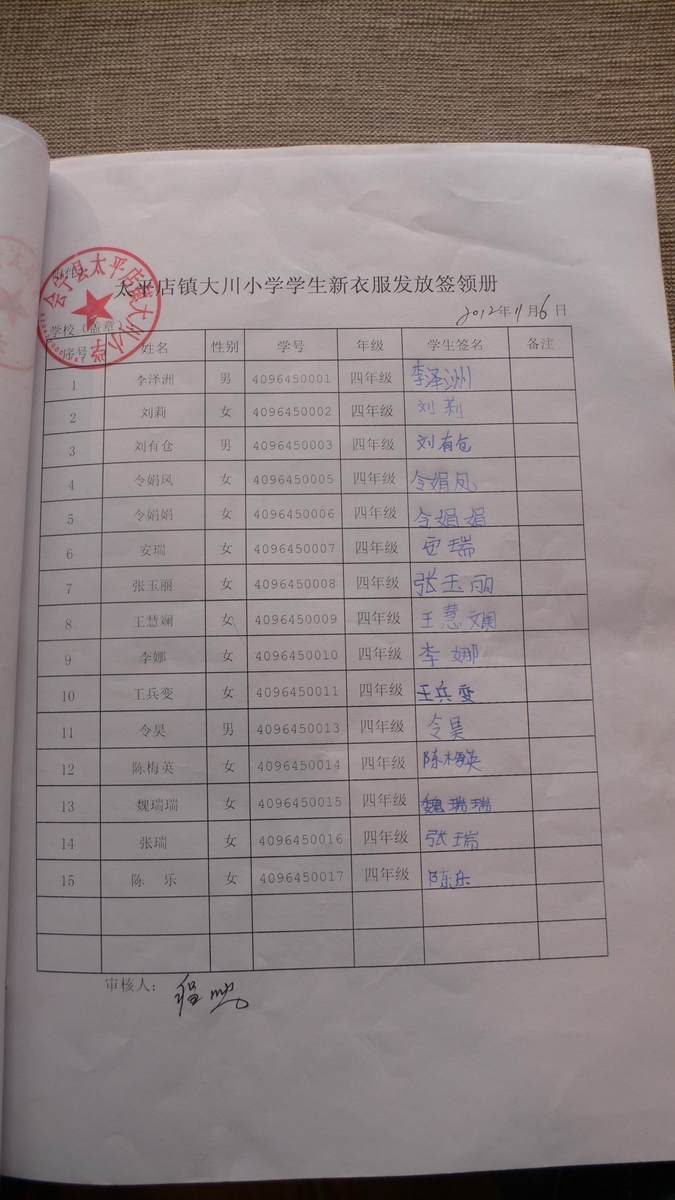 附件
会宁县太平店镇大川小学
太平店镇大川小学学生新衣服发放签领册
学校（盖章） 2012年11月6日
序号 姓名 性别 学号 年级 学生签名 备注
1 李泽洲 男 4096450001 四年级 李泽洲
2 刘莉 女 4096450002 四年级 刘莉
3 刘有仓 男 4096450003 四年级 刘有仓
4 令娟凤 女 4096450005 四年级 令娟凤
5 令娟娟 女 4096450006 四年级 令娟娟
6 安瑞 女 4096450007 四年级 安瑞
7 张玉丽 女 4096450008 四年级 张玉丽
8 王慧斓 女 4096450009 四年级 王慧斓
9 李娜 女 4096450010 四年级 李娜
10 王兵变 女 4096450011 四年级 王兵变
11 令昊 男 4096450013 四年级 令昊
12 陈梅英 女 4096450014 四年级 陈梅英
13 魏瑞瑞 女 4096450015 四年级 魏瑞瑞
14 张瑞 女 4096450016 四年级 张瑞
15 陈 乐 女 4096450017 四年级 陈乐
审核人：